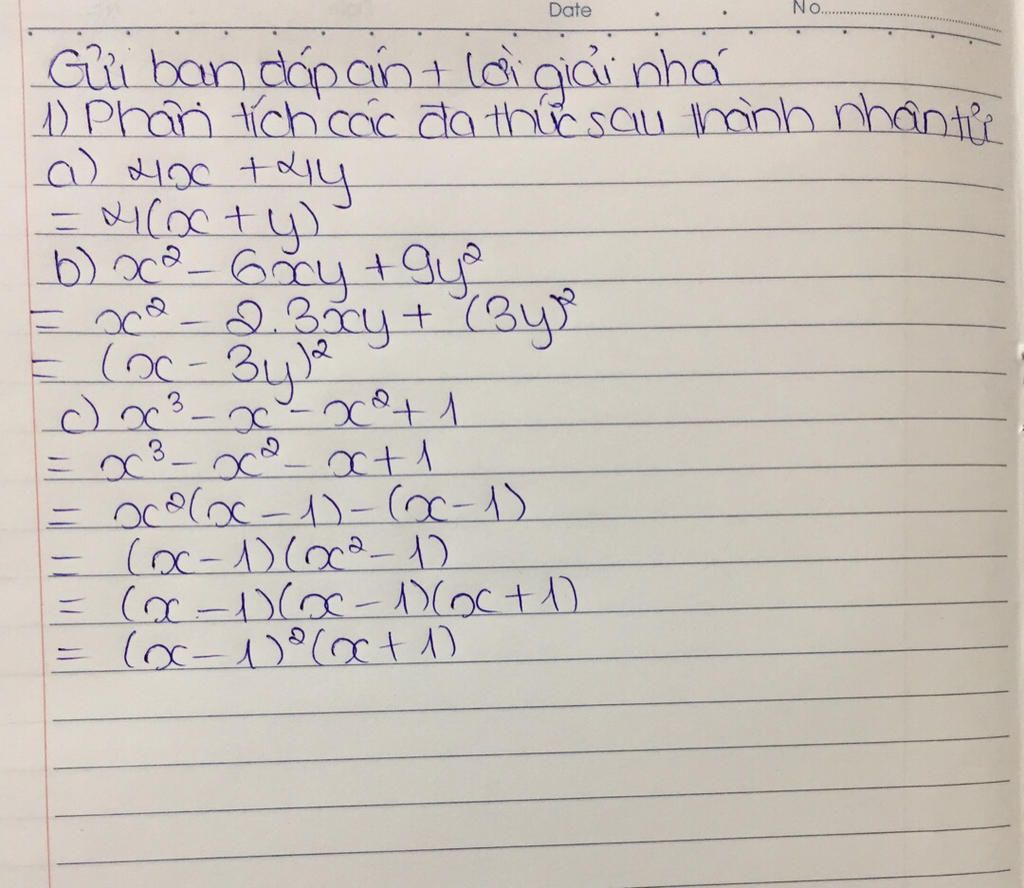 Date . . No
Gửi bạn đáp án + lời giải nhá
1) Phân tích các đa thức sau thành nhân tử
a) 4x + 4y
= 4(x + y)
b) x² - 6xy + 9y²
= x² - 2.3xy + (3y)²
= (x - 3y)²
c) x³ - x - x² + 1
= x³ - x² - x + 1
= x²(x - 1) - (x - 1)
= (x - 1)(x² - 1)
= (x - 1)(x - 1)(x + 1)
= (x - 1)²(x + 1)